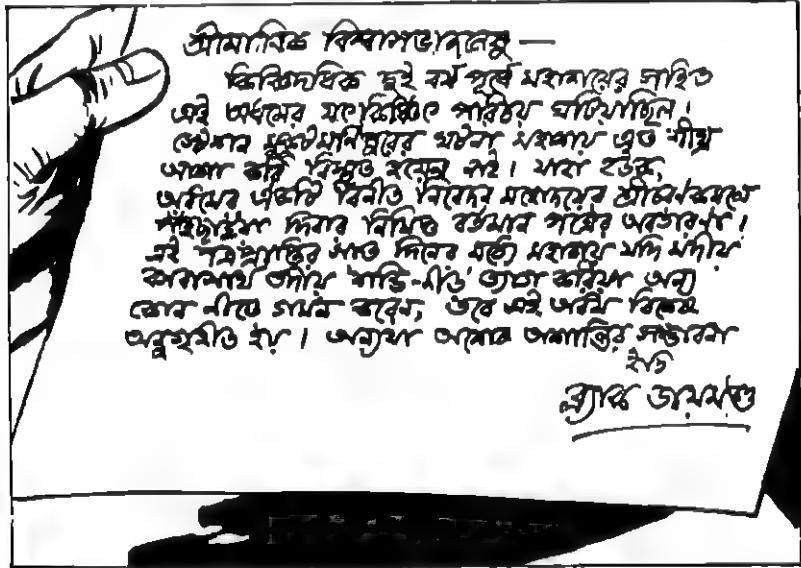 শ্রীমানিক বিশ্বাসভাজনেষু —
কিঞ্চিদধিক দুই বর্ষ পূর্বে মহাশয়ের সহিত
এই অধমের যৎকিঞ্চিৎ পরিচয় ঘটিয়াছিল।
স্টেশন মহাশয় এত শীঘ্র
আশা করি বিস্মৃত হয়েন নাই। যাহা হউক,
অধমের একটি বিনীত নিবেদন মহোদয়ের শ্রীচরণকমলে
পঁহুছাইয়া দিবার নিমিত্ত বর্তমান পত্রের অবতারণা।
এই পত্রপ্রাপ্তির সাত দিনের মধ্যে মহাশয় যদি মদীয়
ত্বদীয় 'শান্তি-নীড়' ত্যাগ করিয়া অন্য
কোন নীড়ে গমন করেন, তবে এই অধম বিশেষ
অনুগৃহীত হয়। অন্যথা অশেষ অশান্তির সম্ভাবনা
ইতি
ব্ল্যাক ডায়মণ্ড